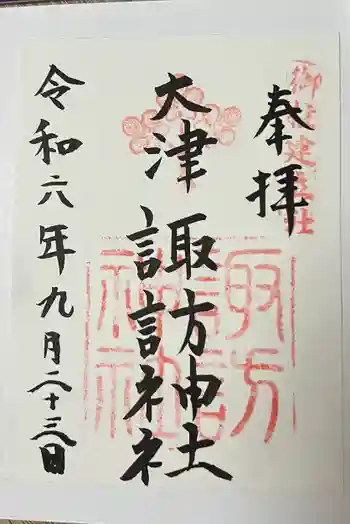 奉拝
大津諏訪神社
諏訪
神社
令和六年九月二十三日